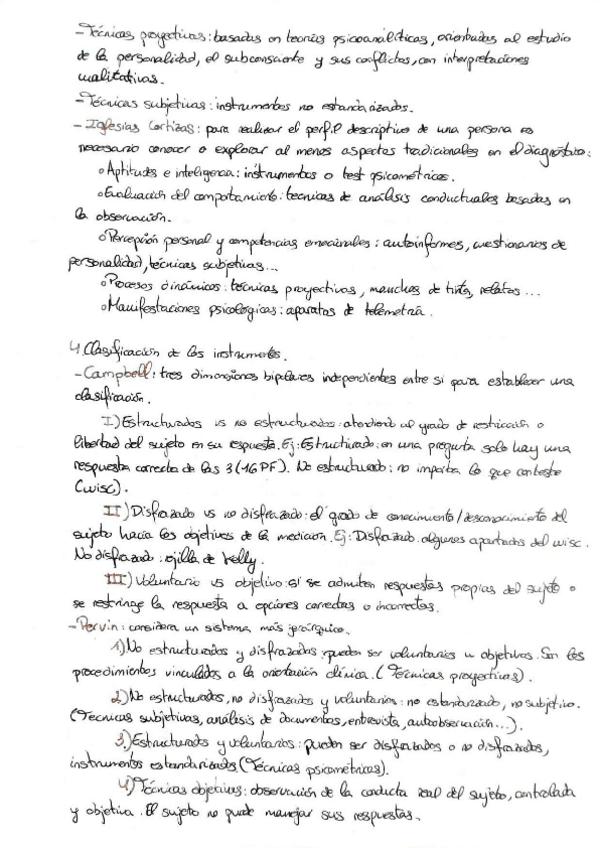 -Técnicas proyectivas: basadas en teorías psicoanalíticas, orientadas al estudio
de la personalidad, el subconsciente y sus conflictos, con interpretaciones
cualitativas.
-Técnicas subjetivas: instrumentos no estandarizados.
-Iglesias Cortizas: para realizar el perfil descriptivo de una persona es
necesario conocer o explorar al menos aspectos tradicionales en el diagnóstico:
o Aptitudes e inteligencia: instrumentos o test psicométricos.
o Evaluación del comportamiento: tecnicas de análisis conductuales basadas en
la observación.
o Percepción personal y competencias emocionales: autoinformes, cuestionarios de
personalidad, técnicas subjetivas...
o Procesos dinámicos: técnicas proyectivas, manchas de tinta, relatos...
o Manifestaciones psicológicas: aparatos de telemetría.
4. Clasificación de los instrumentos.
-Campbell: tres dimensiones bipolares independientes entre si para establecer una
clasificación.
I) Estructurados vs no estructurados: atendiendo al grado de restricción o
libertad del sujeto en su respuesta. Ej: Estructurado: en una pregunta solo hay una
respuesta correcta de las 3 (16PF). No estructurado: no importa lo que conteste
(wisc).
II) Disfrazado vs no disfrazado: el grado de conocimiento/desconocimiento del
sujeto hacia los objetivos de la medicion. Ej: Disfrazado: algunos apartados del wisc.
No disfrazado: rejilla de Kelly.
III) Voluntario vs objetivo: si se admiten respuestas propias del sujeto o
se restringe la respuesta a opciones correctas o incorrectas.
-Pervin: considera un sistema más jerárquico.
1) No estructurados y disfrazados: pueden ser voluntarios u objetivos. Son los
procedimientos vinculados a la orientación clínica. (Técnicas proyectivas).
2) No estructurados, no disfrazados y voluntarios: no estandarizado, no subjetivo.
(Tecnicas subjetivas, análisis de documentos, entrevista, autoobservación...).
3) Estructurados y voluntarios: pueden ser disfrazados o no disfrazados,
instrumentos estandarizados (Técnicas psicométricas).
4) Técnicas objetivas: observación de la conducta real del sujeto, controlada
y objetiva. El sujeto no puede manejar sus respuestas.